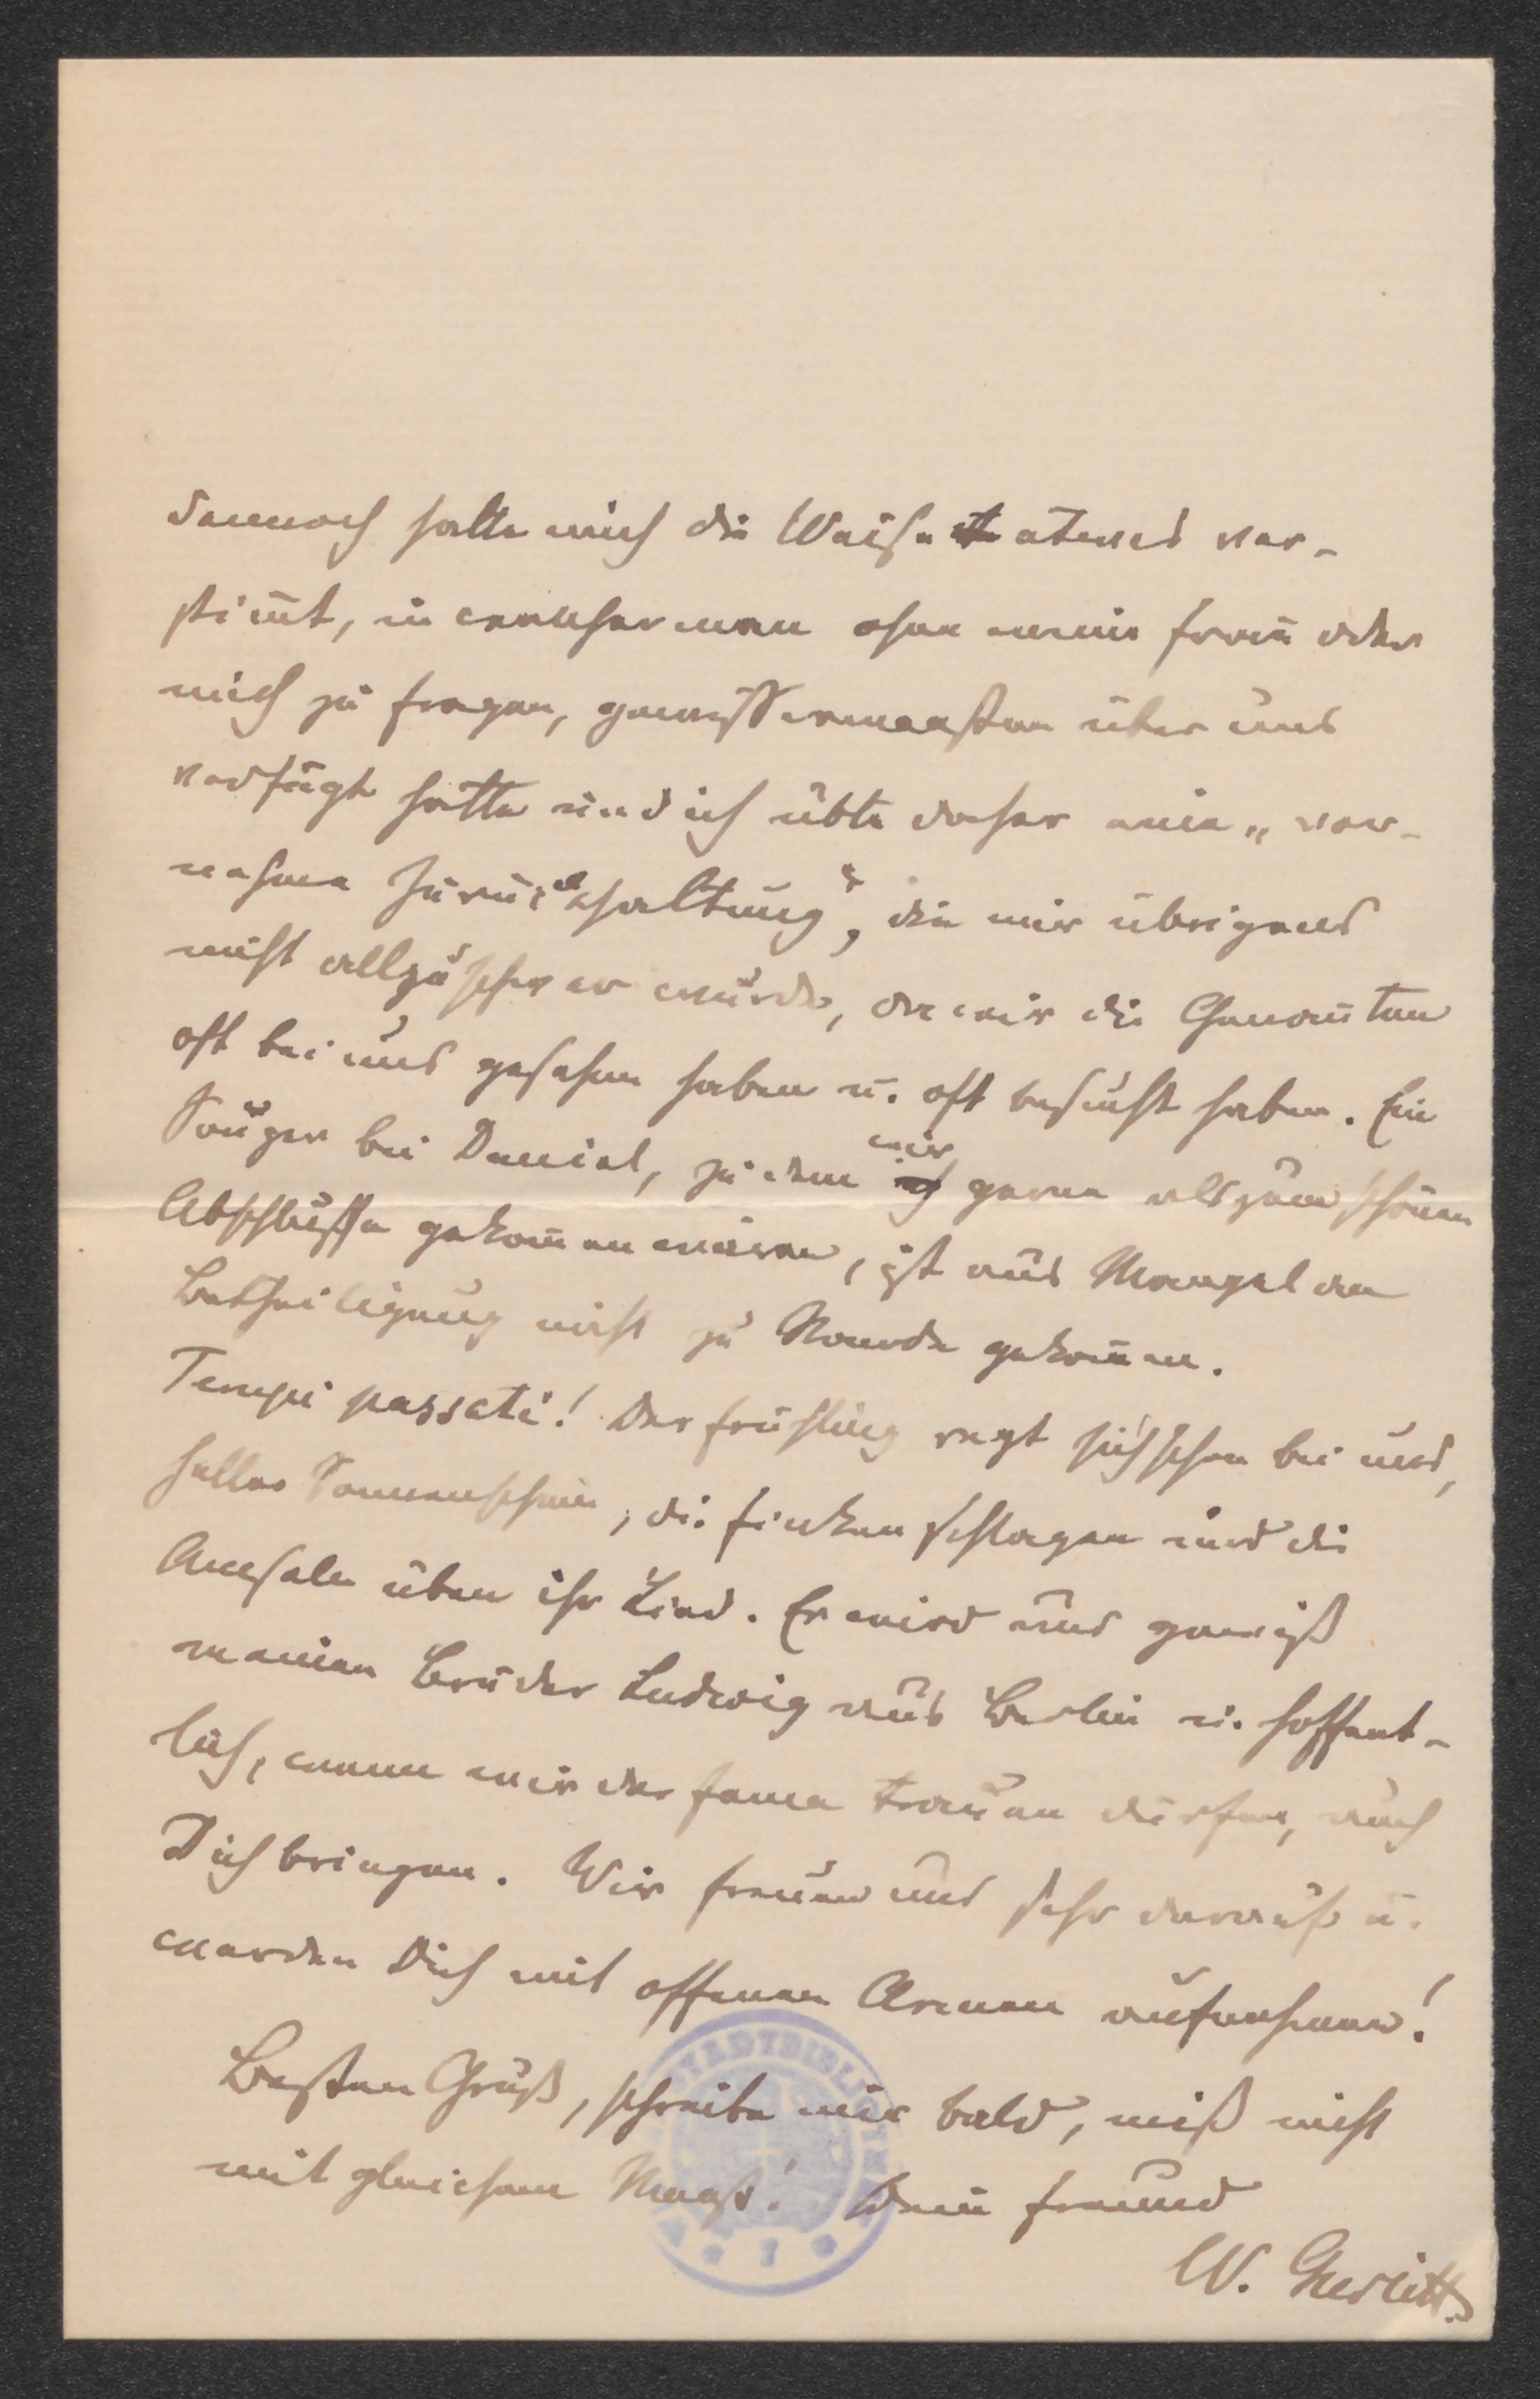 dennoch hatte mich die Weise etwas ver-
stim̅t, in welcher man ohne meine Frau oder
mich zu fragen, gewissermaaßen über uns
verfügt hatte und ich übte daher eine „ vor-
nehme Zurückhaltung“, die mir übrigens
nicht allzuschwer wurde, da wir die Genan̅ten
oft bei uns gesehen haben u. oft besucht haben. Ein
bei Daniel, zu dem wir gerne als zum schönen
Abschlusse gekom̅en wären, ist aus Mangel an
Betheiligung nicht zu Stande gekom̅en.
Tempi passati! Der Frühling regt sich schon bei uns,
heller Sonnenschein, die Finken schlagen und die
Amseln üben ihr Lied. Er wird uns gewiß
meinen Bruder Ludwig aus Berlin u. hoffent-
lich, wenn wir der Fama trauen dürfen, auch
Dich bringen. Wir freuen uns sehr darauf u.
werden Dich mit offenen Armen aufnehmen!
Besten Gruß, schreibe mir bald, miß nicht
mit gleichem Maaß! Dein Freund
W.